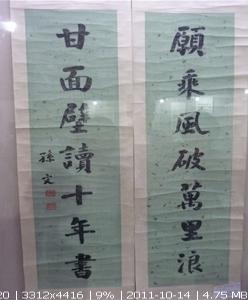 願乘風破萬里浪
甘面壁讀十年書
孫文
20 | 3312x4416 | 9% | 2011-10-14 | 4.75 MB